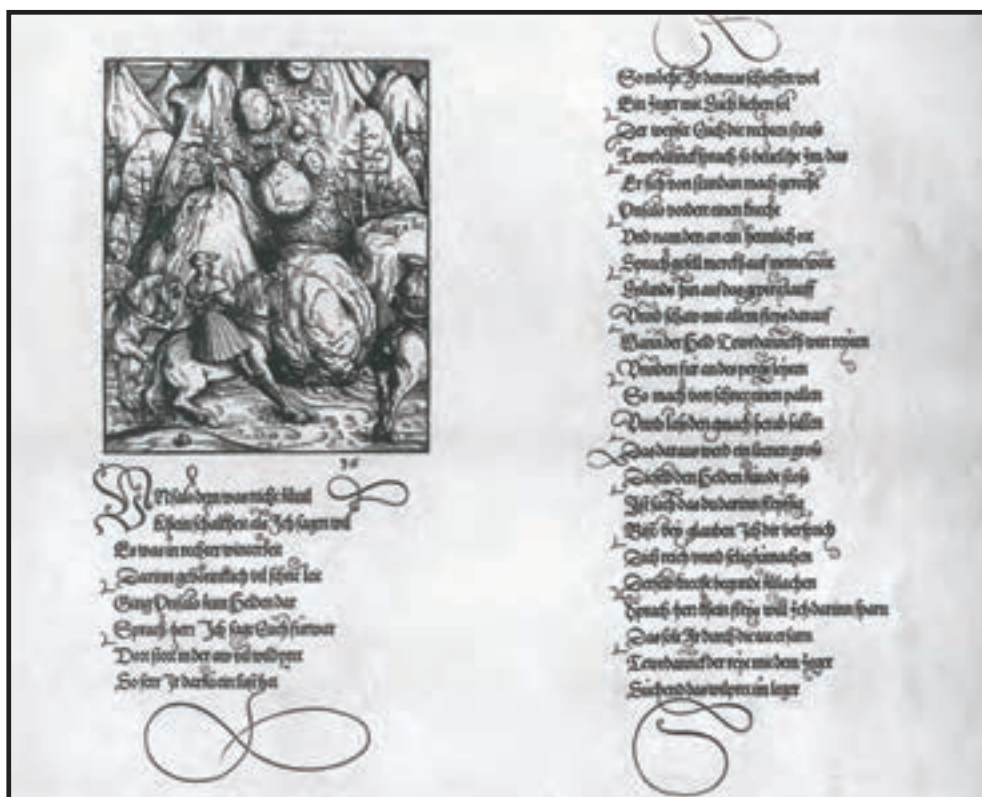 36
was nicht
als Ich sagen wil
Es was in rechter
Darinn vil schne leit
Gieng Vnfalo zum Helden dar
Sprach herr Ich sag Euch furwar
Dort in der aw vil wildpret
So ferr Ir darzu ein lust het
So möcht Ir daraus schiessen wol
Ein Jeger mit Euch ziehen sol
Der weyst Euch die rechten strass
Tewrdannck sprach so beuelcht Im das
Er sich von stundan mach gerecht
Vnfalo vordert einen knecht
Vnd nam den an ein heimlich ort
Sprach gesell merckh auf meine wort
hin auf das gepirg lauff
Vnnd schaw mit allem fleyss darauf
Wann der Held Tewrdannckh
Vnnden fur an des pergs
So mach von schnee einen pallen
Vnnd lass den gmach herab fallen
Das daraus werd ein leenen gross
Dieselb den Helden
Ist sach das du darinn fleyssig
Bist bey glauben Ich dir versprich
Dich reich vnnd selig zumachen
Derselb knecht begunde zulachen
Sprach herr kein fleyss will Ich darinn sparn
Das solt Ir durch die
Tewrdannck der mit dem Jeger
Suchend das wilpret im leger